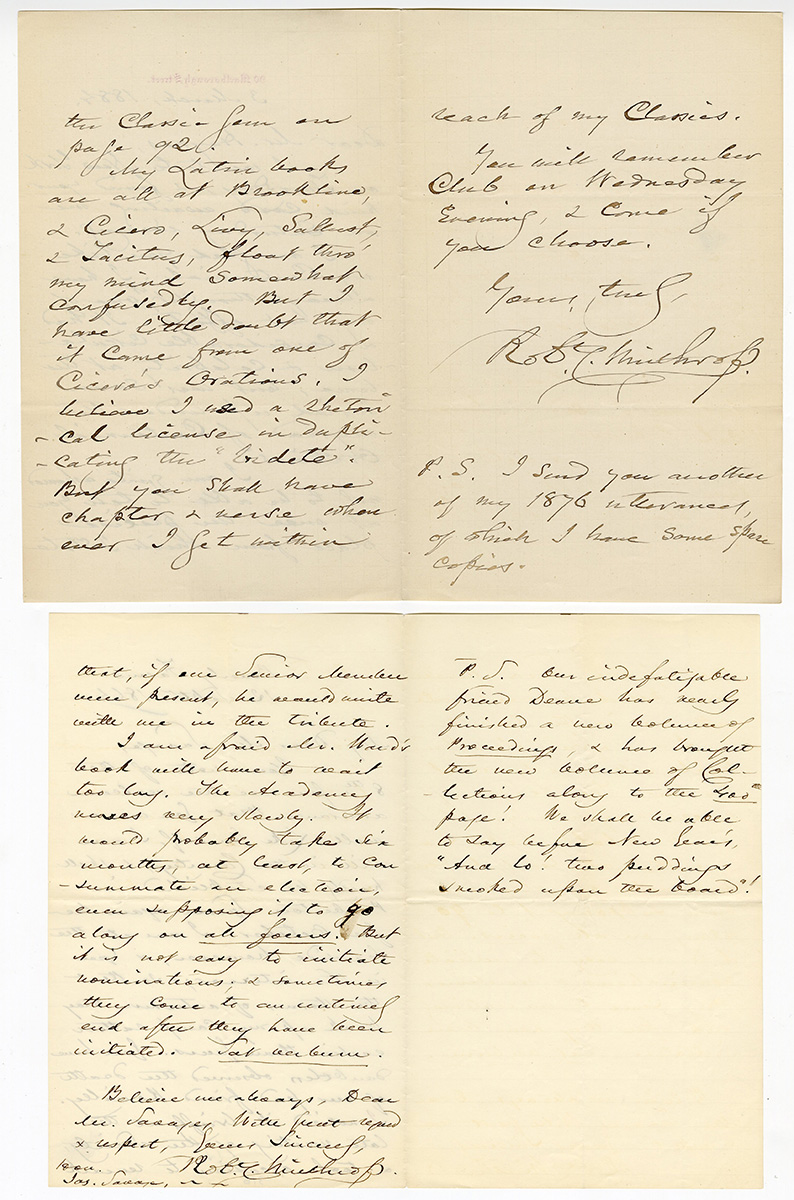 the Classic Gem on
page 92.
My Latin books
are all at Brookline,
& Cicero, Livy, Sallust,
& Tacitus, float thro'
my mind somewhat
confusedly. But I
have little doubt that
it came from one of
Cicero's Orations. I
believe I used a rhetori
-cal license in dupli-
-cating the "videte".
But you shall have
chapter & verse when
ever I get within
reach of my Classics.
You will remember
Club on Wednesday
Evening, & come if
you choose.
Yours, truly,
Robt. C. Winthrop.
P. S. I send you another
of my 1876 utterances,
of which I have some spare
copies.
that, if our Senior Member
were present, he would unite
with me in the tribute.
I am afraid Mr. Ward's
book will have to wait
too long. The Academy
moves very slowly. It
would probably take six
months, at least, to con
-summate an election,
even supposing it to go
along on all fours. But
it is not easy to initiate
nominations, & sometimes
they come to an untimely
end after they have been
initiated. Sat verbum.
Believe me always, Dear
Mr. Savage, With great regard
& respect, Yours Sincerely,
Robt. C. Winthrop.
Hon.
Jas. Savage,
P. S. Our indefatigable
friend Deane has nearly
finished a new volume of
Proceedings, & has brought
the new volume of Col-
-lections along to the
page! We shall be able
to say before New Year's,
"And lo! two puddings
smoked upon the board"!